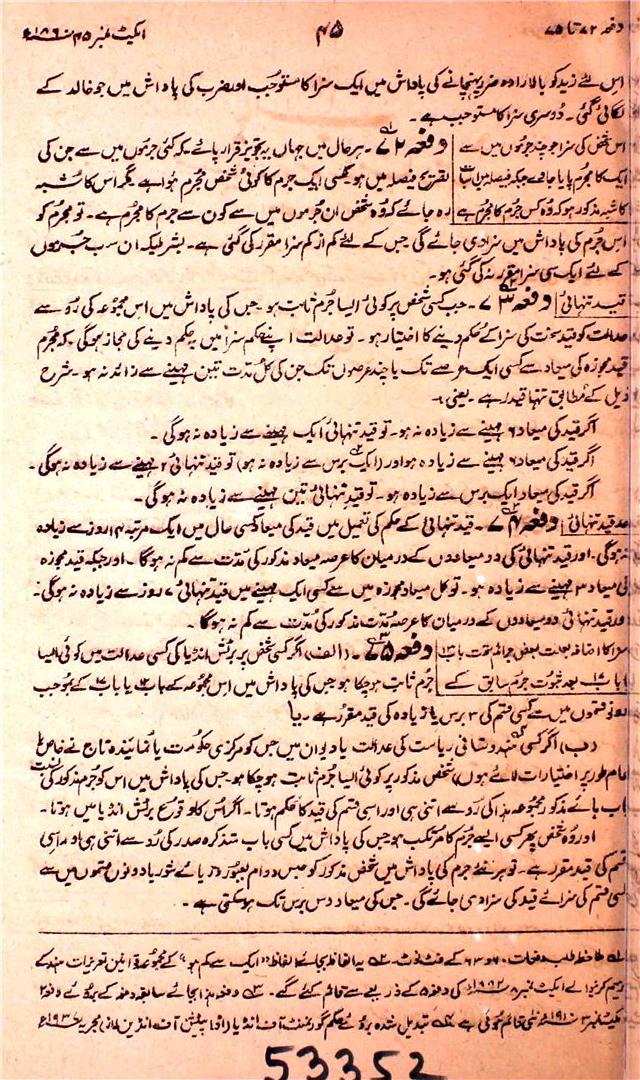 دفعہ ۷۲ تا ۷۵
۴۵
ایکٹ نمبر ۴۵ ۱۸۶۰ء
اس لئے زید کو بالارادہ ضرر پہنچانے کی پاداش میں ایک سزا کا مستوجب اور ضرب کی پاداش میں جو خالد کے
لگائی گئی ۔ دوسری سزا کا مستوجب ہے ۔
اس شخص کی سزا جو چند جرموں میں سے
ایک کا مجرم پایا جاوے جبکہ فیصلہ میں اس بات
کا شبہ مذکور ہو کہ وہ کس جرم کا مجرم ہے
دفعہ ۷۲ ۔ ہر حال میں جہاں یہ تجویز قرار پائے کہ کئی جرموں میں سے جن کی
تصریح فیصلہ میں ہو کسی ایک جرم کا کوئی شخص مجرم ہوا ہے مگر اس کا شبہ
رہ جائے کہ وہ شخص ان جرموں میں سے کون سے جرم کا مجرم ہے ۔ تو مجرم کو
اس جرم کی پاداش میں سزا دی جائے گی جس کے لئے کم از کم سزا مقرر کی گئی ہے ۔ بشرطیکہ ان سب جرموں
کے لئے ایک ہی سزا مقرر نہ کی گئی ہو ۔
قید تنہائی
دفعہ ۷۳ ۔ جب کسی شخص پر کوئی ایسا جرم ثابت ہو جس کی پاداش میں اس مجموعہ کی رو سے
عدالت کو قید سخت کی سزا کے حکم دینے کا اختیار ہو ۔ تو عدالت اپنے حکم سزا میں یہ حکم دینے کی مجاز ہوگی ۔ کہ مجرم
قید مجوزہ کی میعاد سے کسی ایک عرصے تک یا چند عرصوں تک جن کی کل مدت تین مہینے سے زائد نہ ہو ۔ شرح
ذیل کے مطابق تنہا قید رہے ۔ یعنی :-
اگر قید کی میعاد ۶ مہینے سے زیادہ نہ ہو ۔ تو قید تنہائی ایک مہینے سے زیادہ نہ ہوگی ۔
اگر قید کی میعاد ۶ مہینے سے زیادہ ہو اور (ایک برس سے زیادہ نہ ہو) تو قید تنہائی ۲ مہینے سے زیادہ نہ ہوگی ۔
اگر قید کی میعاد ایک برس سے زیادہ ہو ۔ تو قید تنہائی تین مہینے سے زیادہ نہ ہوگی ۔
حد قید تنہائی
دفعہ ۷۴ ۔ قید تنہائی کے حکم کی تعمیل میں قید کی میعاد کسی حال میں ایک مرتبہ ۱۴ روز سے زیادہ
نہ ہوگی ۔ اور قید تنہائی کی دو میعادوں کے درمیان کا عرصہ میعاد مذکور کی مدت سے کم نہ ہوگا ۔ اور جبکہ قید مجوزہ
کی میعاد ۳ مہینے سے زیادہ ہو ۔ تو کل میعاد مجوزہ میں سے کسی ایک مہینے میں قید تنہائی ۷ روز سے زیادہ نہ ہوگی ۔
اور قید تنہائی دو میعادوں کے درمیان کا عرصہ مدت مذکور کی مدت سے کم نہ ہوگا ۔
سزا کا اضافہ بعلت بعض جرائم تحت باب ۱۲
یا باب ۱۷ بعد ثبوت جرم سابق کے
دفعہ ۷۵ ۔ (الف) اگر کسی شخص پر برٹش انڈیا کی کسی عدالت میں کوئی ایسا
جرم ثابت ہو چکا ہو جس کی پاداش میں اس مجموعہ کے باب ۱۲ یا باب ۱۷ کے بموجب
دونوں قسموں میں سے کسی قسم کی ۳ برس یا زیادہ کی قید مقرر ہے ۔ یا
(ب) اگر کسی ہندوستانی ریاست کی عدالت یا دیوان میں جس کو مرکزی حکومت یا نمائندہ تاج نے خاص یا
عام طور پر اختیارات دئے ہوں) شخص مذکور پر کوئی ایسا جرم ثابت ہو چکا ہو جس کی پاداش میں اس کو جرم مذکور کی نسبت
باب ہائے مذکور مجموعہ ہذا کی رو سے اتنی ہی اور اسی قسم کی قید کا حکم ہوتا ۔ اگر اس کا وقوع برٹش انڈیا میں ہوتا ۔
اور وہ شخص پھر کسی ایسے جرم کا مرتکب ہو جس کی پاداش میں کسی باب متذکرہ صدر کی رو سے اتنی ہی اور اسی
قسم کی قید مقرر ہے ۔ تو ہر نئے جرم کی پاداش میں شخص مذکور کو حبس دوام بعبور دریائے شور یا دونوں قسموں میں سے
کسی قسم کی سزائے قید کی سزا دی جائے گی ۔ جس کی میعاد دس برس تک ہو سکتی ہے ۔
ملاحظہ طلب دفعات ۔ ۶۰ و ۶۳ کے فٹ نوٹ ۔ یہ الفاظ بجائے الفاظ "ایک سے کم ہو" کے مجموعہ قوانین تعزیرات ہند کے
ترمیم کرنیوالے ایکٹ نمبر ۸ ۱۸۸۲ء کی دفعہ ۵ کے ذریعے سے قائم کئے گئے ۔ دفعہ ہذا بجائے سابقہ دفعہ کے بروئے دفعہ ۲
ایکٹ نمبر ۳ ۱۹۱۰ء نئی قائم ہوئی ہے تبدیل شدہ بروئے حکم گورنمنٹ آف انڈیا (اڈاپٹیشن آف انڈین لاز) مجریہ ۱۹۳۷ء
53352